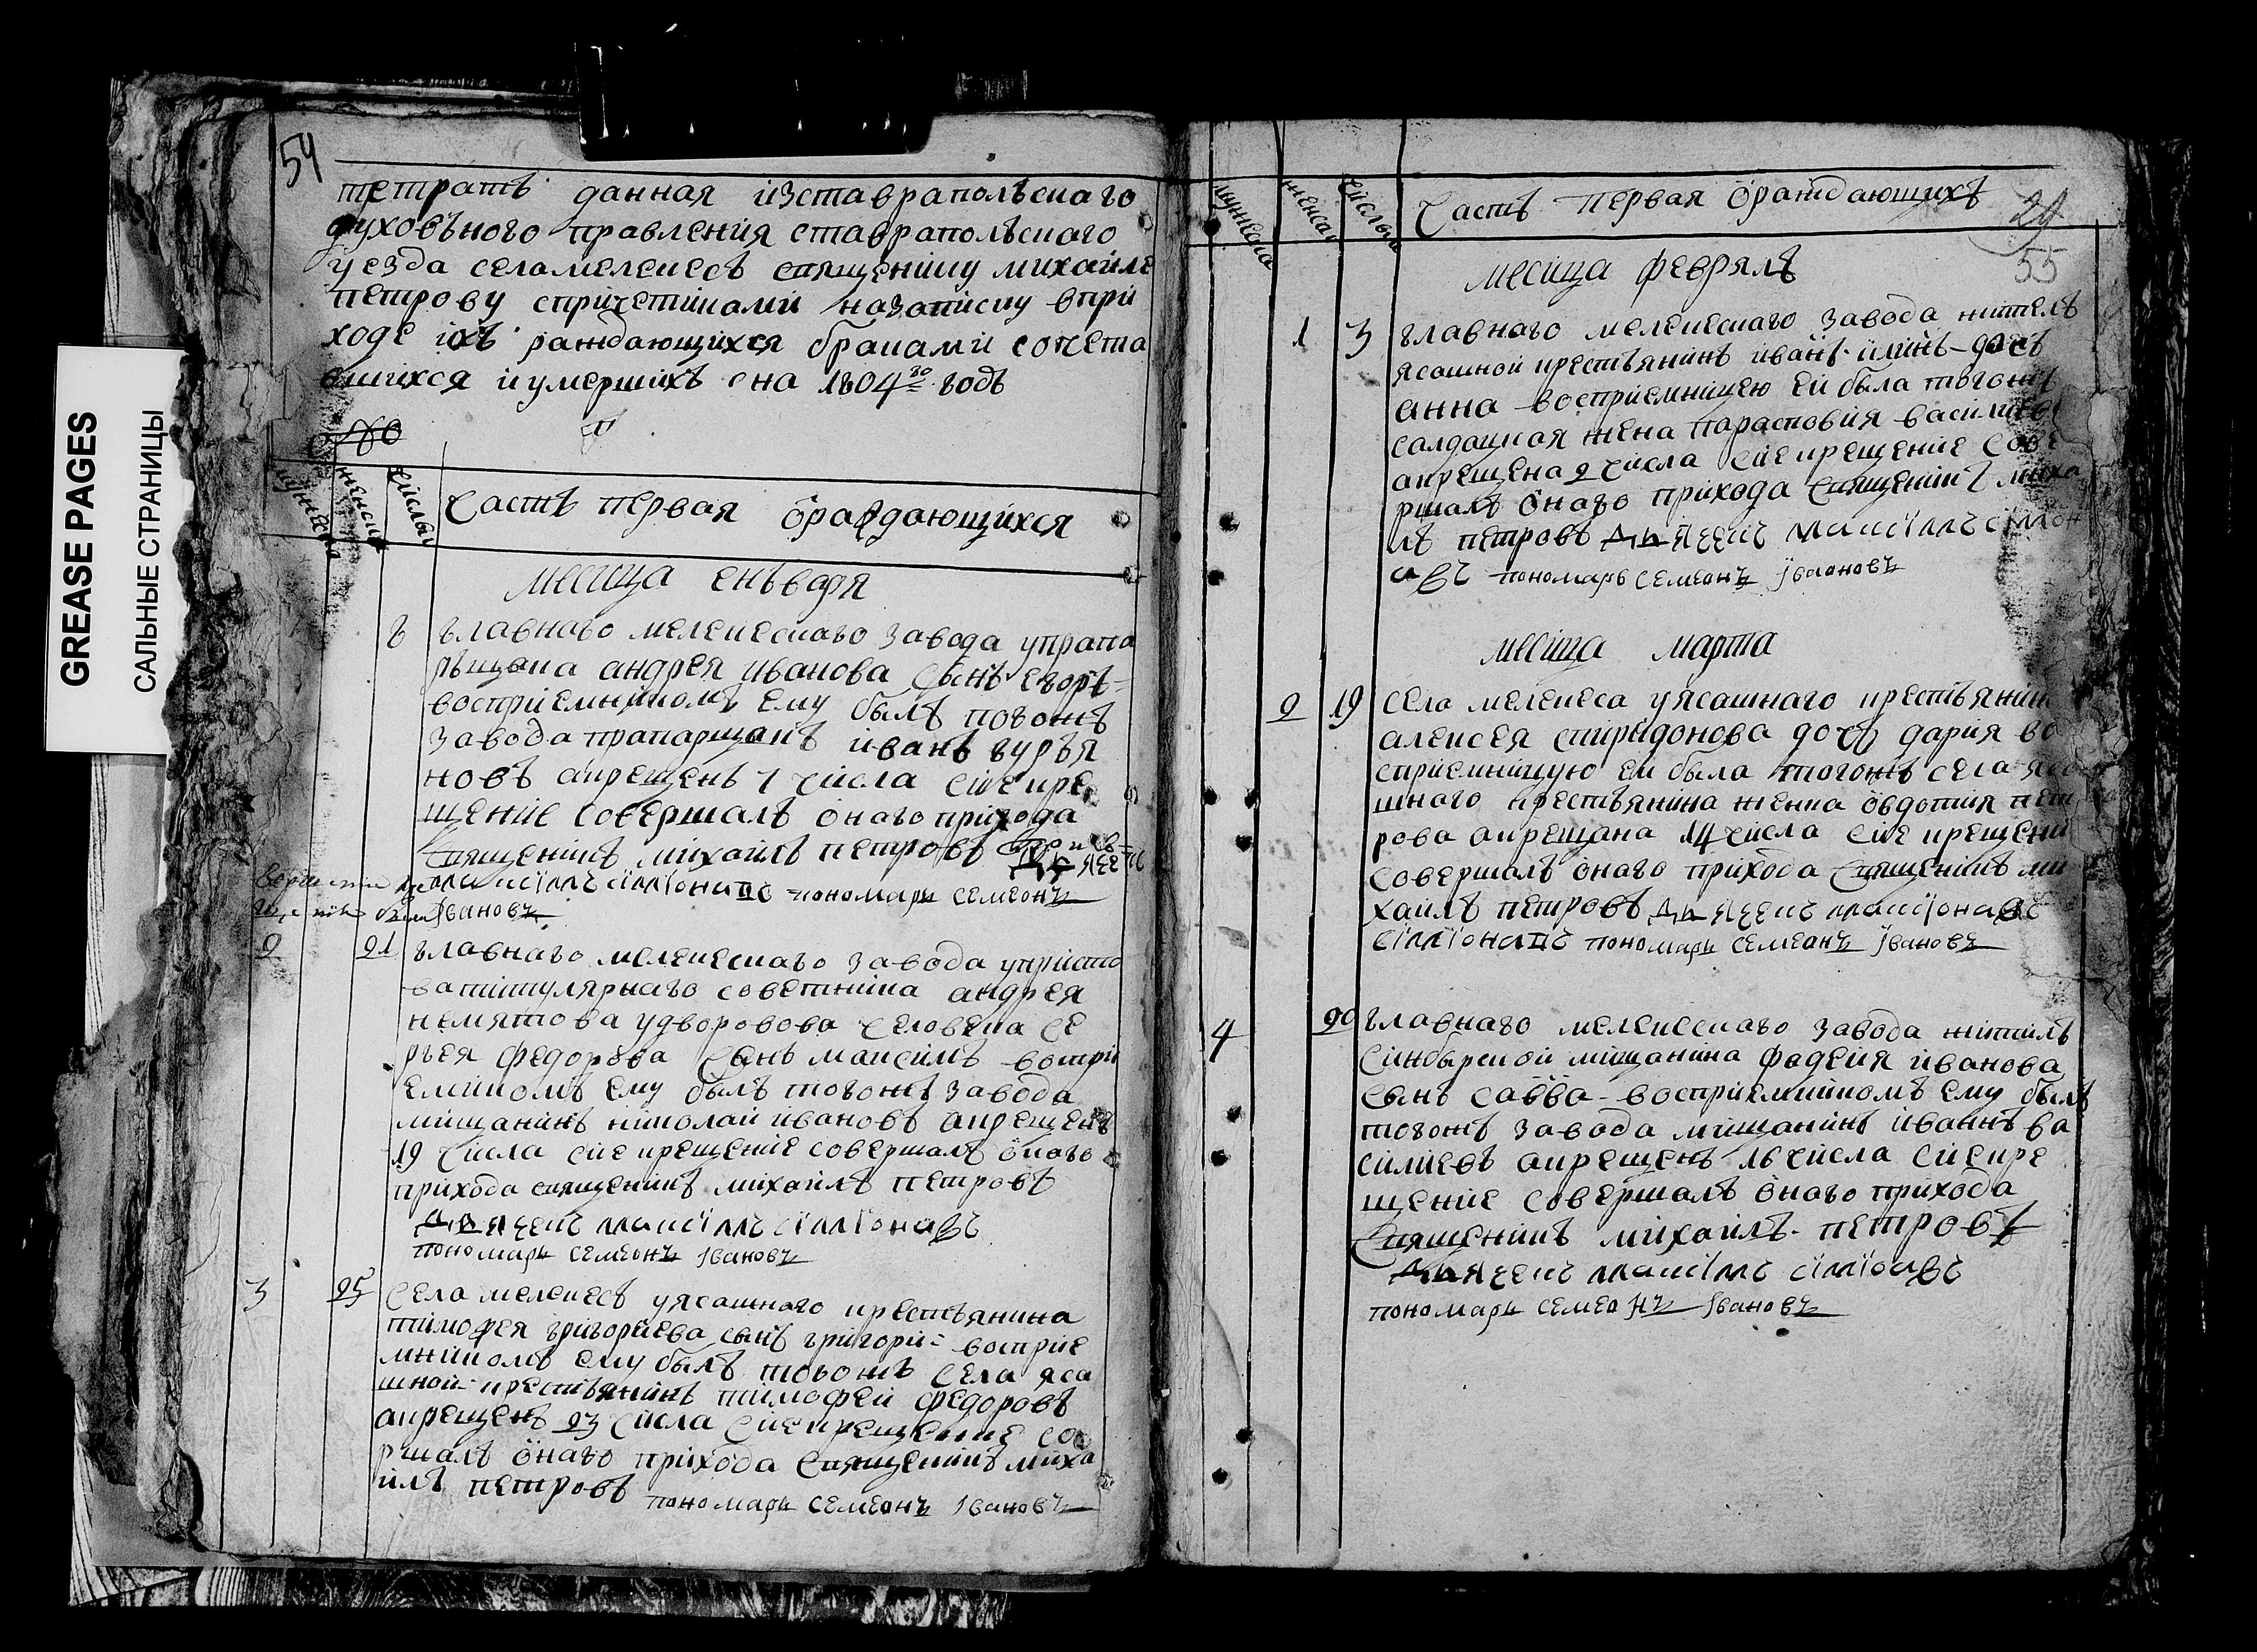 GREASE PAGES
САЛЬНЫЕ СТРАНИЦЫ
54
тетрать данная изставрапольскаго
духовьного правления ставрапольскаго
уезда селамелекесъ священику михайле
петрову спричетниками назаписку впри
ходе ихъ раждающихся браками сочета
вшихся иумершихъ сна 1804го годъ
мужеска
женска
числы
часть первая ораждающихся
месица енъваря
8 главнаго мелекескаго завода упрапо
рьщика андрея иванова сынъ егоръ
восприемникомъ ему былъ тогожъ
завода прапарщикъ иванъ гурья
новъ акрещенъ 7 числа сие кре
щение совершалъ онаго прихода
священикъ михаилъ петровъ
пономарь семеонъ
Ивановъ
2 21 главнаго мелекескаго завода упристо
ватитулярнаго советника андрея
немятова удворовова человека се
ргея федорова сынъ максимъ воспри
емникомъ ему былъ тогожъ завода
мищанинъ николай ивановъ акрещенъ
19 числа сие крещение совершалъ онаго
прихода священикъ михаилъ петровъ
дьячекъ максимъ симионовъ
пономарь семеонъ Ивановъ
3 25 села мелекесъ уясашнаго крестьянина
тимофея григориева сынъ григорий восприе
мникомъ ему былъ тогожъ села яса
шной крестьянинъ тимофей федоровъ
акрещенъ 23 числа сие крещение сове
ршалъ онаго прихода священикъ миха
илъ петровъ пономарь семеонъ Ивановъ
мужеска
женска
числы
часть первая ораждающихъ
29
55
месица февряль
1 3 главнаго мелекескаго завода житель
ясашной крестьянинъ иванъ илинъ дочь
анна восприемницею ей была тогожъ
салдацкая жена парасковия василиева
акрещена 2 числа сие крещение сове
ршалъ онаго прихода священикъ миха
лъ петровъ дьячекъ максимъ симон
овъ пономарь семеонъ Ивановъ
месица марта
2 19 села мелекеса уясашнаго крестьянин
алексея спиридонова дочь дария во
сприемницую ей была тогожъ села яса
шнаго крестьянина женка овдотия пет
рова акрещана 14 числа сие крещени
совершалъ онаго прихода священикъ ми
хаилъ петровъ дьячекъ
пономарь семеонъ Ивановъ
4 20 главнаго мелекескаго завода житиль
синбырской мищанина фадеия иванова
сынъ савва восприемникомъ ему былъ
тогожъ завода мищанинъ иваннъ ва
силиевъ акрещенъ 18 числа сие кре
щение совершалъ онаго прихода
священикъ михаилъ петровъ
дьячекъ максимъ симиовъ
пономарь семеонъ Ивановъ